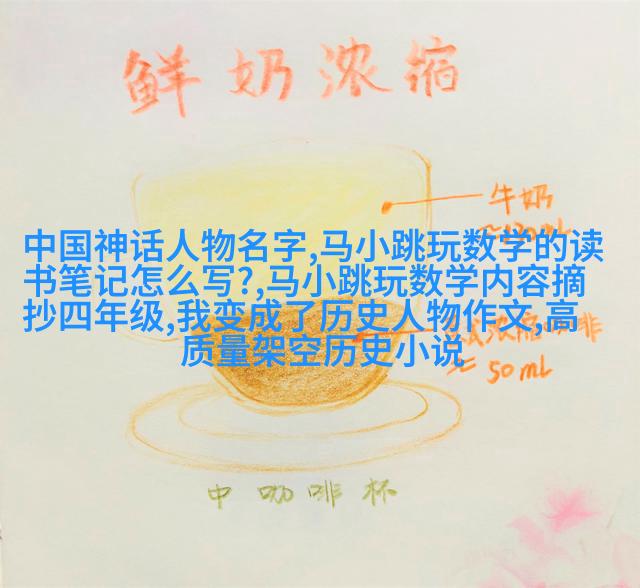 鲜奶浓缩
牛奶
中国神话人物名字,马小跳玩数学的读
书笔记怎么写?,马小跳玩数学内容摘
抄四年级,我变成了历史人物作文,高
质量架空历史小说
浓缩咖啡
≈ 50mL
中咖啡杯